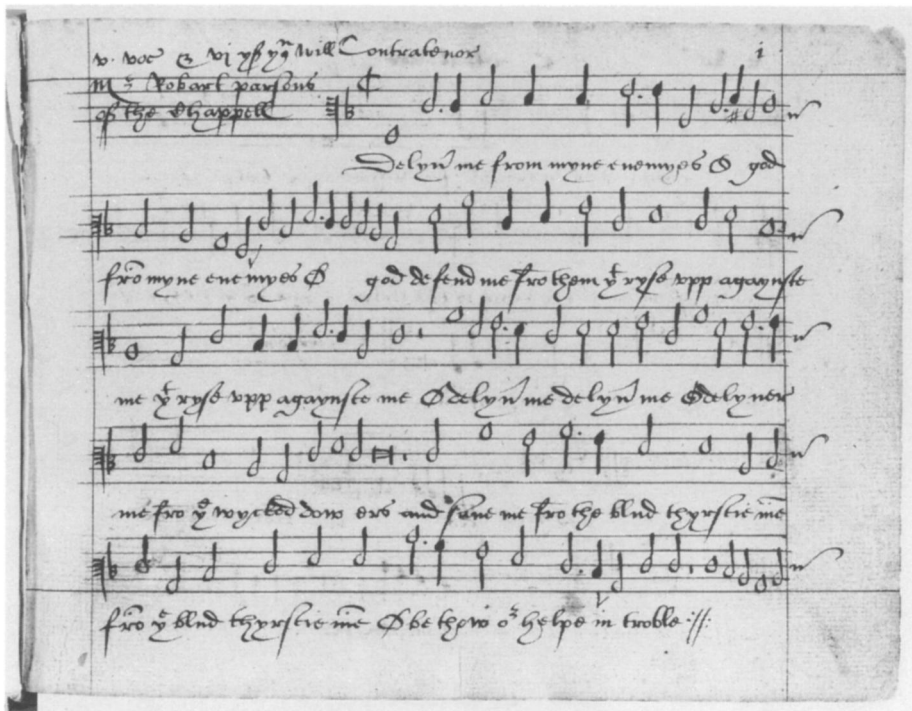 v. voc & vj yf yu will Contratenor i
Mr Robart parsons
of the Chappell
Delyur me from myne enemyes O god
fro myne enemyes O god defend me fro them yt ryse vpp agaynste
me yt ryse vpp agaynste me O delyur me delyur me O delyuer
me fro ye wycked dow ers and saue me fro the blud thyrstie me
fro ye blud thyrstie me O be thow or helpe in troble